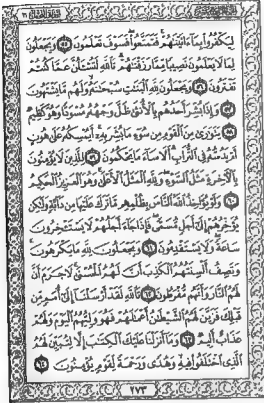 لِيَكْفُرُوا۟ بِمَآ ءَاتَيْنَٰهُمْ فَتَمَتَّعُوا۟ فَسَوْفَ تَعْلَمُونَ ٥٥ وَيَجْعَلُونَ
لِمَا لَا يَعْلَمُونَ نَصِيبًا مِّمَّا رَزَقْنَٰهُمْ تَٱللَّهِ لَتُسْـَٔلُنَّ عَمَّا كُنتُمْ
تَفْتَرُونَ ٥٦ وَيَجْعَلُونَ لِلَّهِ ٱلْبَنَٰتِ سُبْحَٰنَهُۥ وَلَهُم مَّا يَشْتَهُونَ
٥٧ وَإِذَا بُشِّرَ أَحَدُهُم بِٱلْأُنثَىٰ ظَلَّ وَجْهُهُۥ مُسْوَدًّا وَهُوَ كَظِيمٌ
٥٨ يَتَوَٰرَىٰ مِنَ ٱلْقَوْمِ مِن سُوٓءِ مَا بُشِّرَ بِهِۦٓ أَيُمْسِكُهُۥ عَلَىٰ هُونٍ
أَمْ يَدُسُّهُۥ فِى ٱلتُّرَابِ أَلَا سَآءَ مَا يَحْكُمُونَ ٥٩ لِلَّذِينَ لَا يُؤْمِنُونَ
بِٱلْـَٔاخِرَةِ مَثَلُ ٱلسَّوْءِ وَلِلَّهِ ٱلْمَثَلُ ٱلْأَعْلَىٰ وَهُوَ ٱلْعَزِيزُ ٱلْحَكِيمُ
٦٠ وَلَوْ يُؤَاخِذُ ٱللَّهُ ٱلنَّاسَ بِظُلْمِهِم مَّا تَرَكَ عَلَيْهَا مِن دَآبَّةٍ وَلَٰكِن
يُؤَخِّرُهُمْ إِلَىٰٓ أَجَلٍ مُّسَمًّى فَإِذَا جَآءَ أَجَلُهُمْ لَا يَسْتَـْٔخِرُونَ
سَاعَةً وَلَا يَسْتَقْدِمُونَ ٦١ وَيَجْعَلُونَ لِلَّهِ مَا يَكْرَهُونَ
وَتَصِفُ أَلْسِنَتُهُمُ ٱلْكَذِبَ أَنَّ لَهُمُ ٱلْحُسْنَىٰ لَا جَرَمَ أَنَّ
لَهُمُ ٱلنَّارَ وَأَنَّهُم مُّفْرَطُونَ ٦٢ تَٱللَّهِ لَقَدْ أَرْسَلْنَآ إِلَىٰٓ أُمَمٍ مِّن
قَبْلِكَ فَزَيَّنَ لَهُمُ ٱلشَّيْطَٰنُ أَعْمَٰلَهُمْ فَهُوَ وَلِيُّهُمُ ٱلْيَوْمَ وَلَهُمْ
عَذَابٌ أَلِيمٌ ٦٣ وَمَآ أَنزَلْنَا عَلَيْكَ ٱلْكِتَٰبَ إِلَّا لِتُبَيِّنَ لَهُمُ
ٱلَّذِى ٱخْتَلَفُوا۟ فِيهِ وَهُدًى وَرَحْمَةً لِّقَوْمٍ يُؤْمِنُونَ ٦٤
٢٧٣